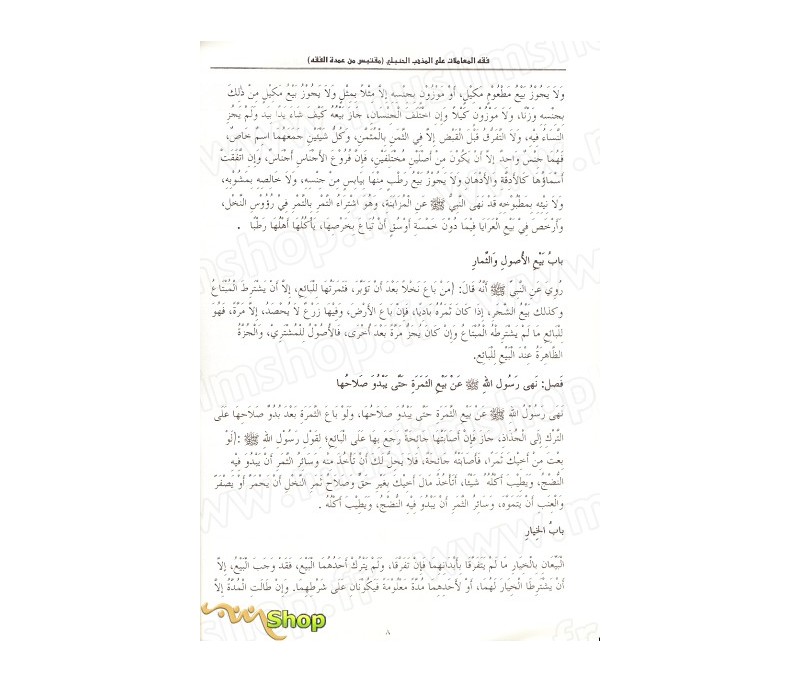 فقه المعاملات على المذهب الحنبلي (مقتبس من عمدة الفقه)
وَلَا يَجُوْزُ بَيْعُ مَطْعُوْمِ مَكِيْلٍ، أَوْ مَوْزُوْنٍ بِجِنْسِهِ إِلَّا مِثْلاً بِمِثْلٍ وَلَا يَجُوْزُ بَيْعُ مَكِيْلٍ مِنْ ذَلِكَ
بِجِنْسِهِ وَزْنًا، ولا مَوْزُوْنٍ كَيْلاً وإِنِ اخْتَلَفَ الْجِنْسَانِ، جَازَ بَيْعُهُ كَيْفَ شَاءَ يَدًا بِيَدٍ وَلَمْ يَجُزِ
النَّسَاءُ فيْهِ، ولَا التَّفَرُّقُ قَبْلَ القَبْضِ إِلَّا فِي الثَّمَنِ بِالْمُثَمَّنِ، وَكُلُّ شَيْئَيْنِ جَمَعَهُمَا اسْمٌ خَاصٌّ،
فَهُمَا جِنْسٌ وَاحِدٌ إِلَّا أَنْ يَكُوْنَ مِنْ أَصْلَيْنِ مُخْتَلِفَيْنِ، فَإِنَّ فُرُوْعَ الأَجْنَاسِ أَجْنَاسٌ، وَإِنِ اتَّفَقَتْ
أَسْمَاؤُهَا كَالأَدِقَّةِ وَالأَدْهَانِ وَلَا يَجُوْزُ بَيْعُ رَطْبٍ مِنْهَا بِيَابِسٍ مِنْ جِنْسِهِ، وَلَا خَالِصِهِ بِمَشُوْبِهِ،
ولَا نِيْئِهِ بِمَطْبُوْخِهِ قَدْ نَهَى النَّبِيُّ ﷺ عَنِ الْمُزَابَنَةِ، وَهُوَ اشْتِرَاءُ التَّمْرِ بِالتَّمْرِ فِيْ رُؤُوْسِ النَّخْلِ،
وَأَرْخَصَ فِيْ بَيْعِ العَرَايَا فِيْمَا دُوْنَ خَمْسَةِ أَوْسُقٍ أَنْ تُبَاعَ بِخَرْصِهَا، يَأْكُلُهَا أَهْلُهَا رُطَبًا .
بابُ بَيْعِ الأُصولِ وَالثِّمارِ
رُوِيَ عَنِ النَّبِيِّ ﷺ أَنَّهُ قَالَ: (مَنْ بَاعَ نَخْلاً بَعْدَ أَنْ تُؤَبَّرَ، فَثَمَرَتُهَا لِلْبَائِعِ، إِلَّا أَنْ يَشْتَرِطَ الْمُبْتَاعُ
وكذلك بَيْعُ الشَّجَرِ، إِذَا كَانَ ثَمَرُهُ بَادِيًا، فَإِنْ بَاعَ الأَرْضَ، وَفِيْهَا زَرْعٌ لَا يُحْصَدُ، إِلَّا مَرَّةً، فَهُوَ
لِلْبَائِعِ مَا لَمْ يَشْتَرِطْهُ الْمُبْتَاعُ وَإِنْ كَانَ يُجَزُّ مَرَّةً بَعْدَ أُخْرَى، فَالأُصُوْلُ لِلْمُشْتَرِيْ، وَالْجُزَّةُ
الظَّاهِرَةُ عِنْدَ الْبَيْعِ لِلْبَائِعِ.
فَصل: نَهى رَسُول اللهِ ﷺ عَنْ بَيْعِ الثَّمَرَةِ حَتَّى يَبْدُوَ صَلاحُها
نَهَى رَسُوْلُ اللهِ ﷺ عَنْ بَيْعِ الثَّمَرَةِ حَتَّى يَبْدُوَ صَلَاحُهَا، وَلَوْ بَاعَ الثَّمَرَةَ بَعْدَ بُدُوِّ صَلَاحِهَا عَلَى
التَّرْكِ إِلَى الْجُذَاذِ، جَازَ فَإِنْ أَصَابَتْهَا جَائِحَةٌ رَجَعَ بِهَا عَلَى الْبَائِعِ؛ لقَوْلِ رَسُوْلِ اللهِ ﷺ :(لَوْ
بِعْتَ مِنْ أَخِيْكَ ثَمَرًا، فَأَصَابَتْهُ جَائِحَةٌ، فَلَا يَحِلُّ لَكَ أَنْ تَأْخُذَ مِنْه وَسَائِرُ الثَّمَرِ أَنْ يَبْدُوَ فِيهِ
النُّضْجُ، وَيَطِيْبَ أَكْلُهُ شَيْئًا، أَتَأْخُذُ مَالَ أَخِيْكَ بِغَيْرِ حَقٍّ وَصَلَاحُ ثَمَرِ النَّخْلِ أَنْ يَحْمَرَّ أَوْ يَصْفَرَّ
وَالْعِنَبِ أَنْ يَتَمَوَّهَ، وَسَائِرُ الثَّمَرِ أَنْ يَبْدُوَ فِيْهِ النُّضْجُ، وَيَطِيْبَ أَكْلُهُ .
بابُ الخِيارِ
الْبَيِّعَانِ بِالْخِيَارِ مَا لَمْ يَتَفَرَّقَا بِأَبْدَانِهِمَا فَإِنْ تَفَرَّقَا، وَلَمْ يَتْرُكْ أَحَدُهُمَا الْبَيْعَ، فَقَدْ وَجَبَ الْبَيْعُ، إِلَّا
أَنْ يَشْتَرِطَا الْخِيَارَ لَهُمَا، أَوْ لأَحَدِهِمَا مُدَّةً مَعْلُوْمَةً فَيَكُوْنَانِ عَلَى شَرْطِهِمَا. وَإِنْ طَالَتِ الْمُدَّةُ إِلَّا
Shop
٨